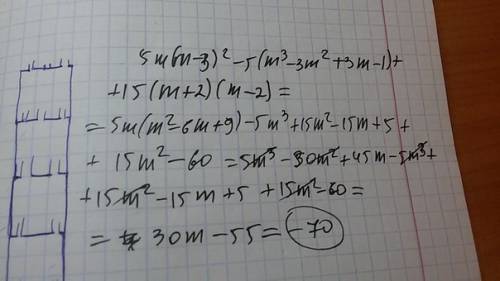 5m(m-3)²-5(m³-3m²+3m-1)+
+15(m+2)(m-2)=
=5m(m²-6m+9)-5m³+15m²-15m+5+
+15m²-60=5m³-30m²+45m-5m³+
+15m²-15m+5+15m²-60=
=30m-55=-70